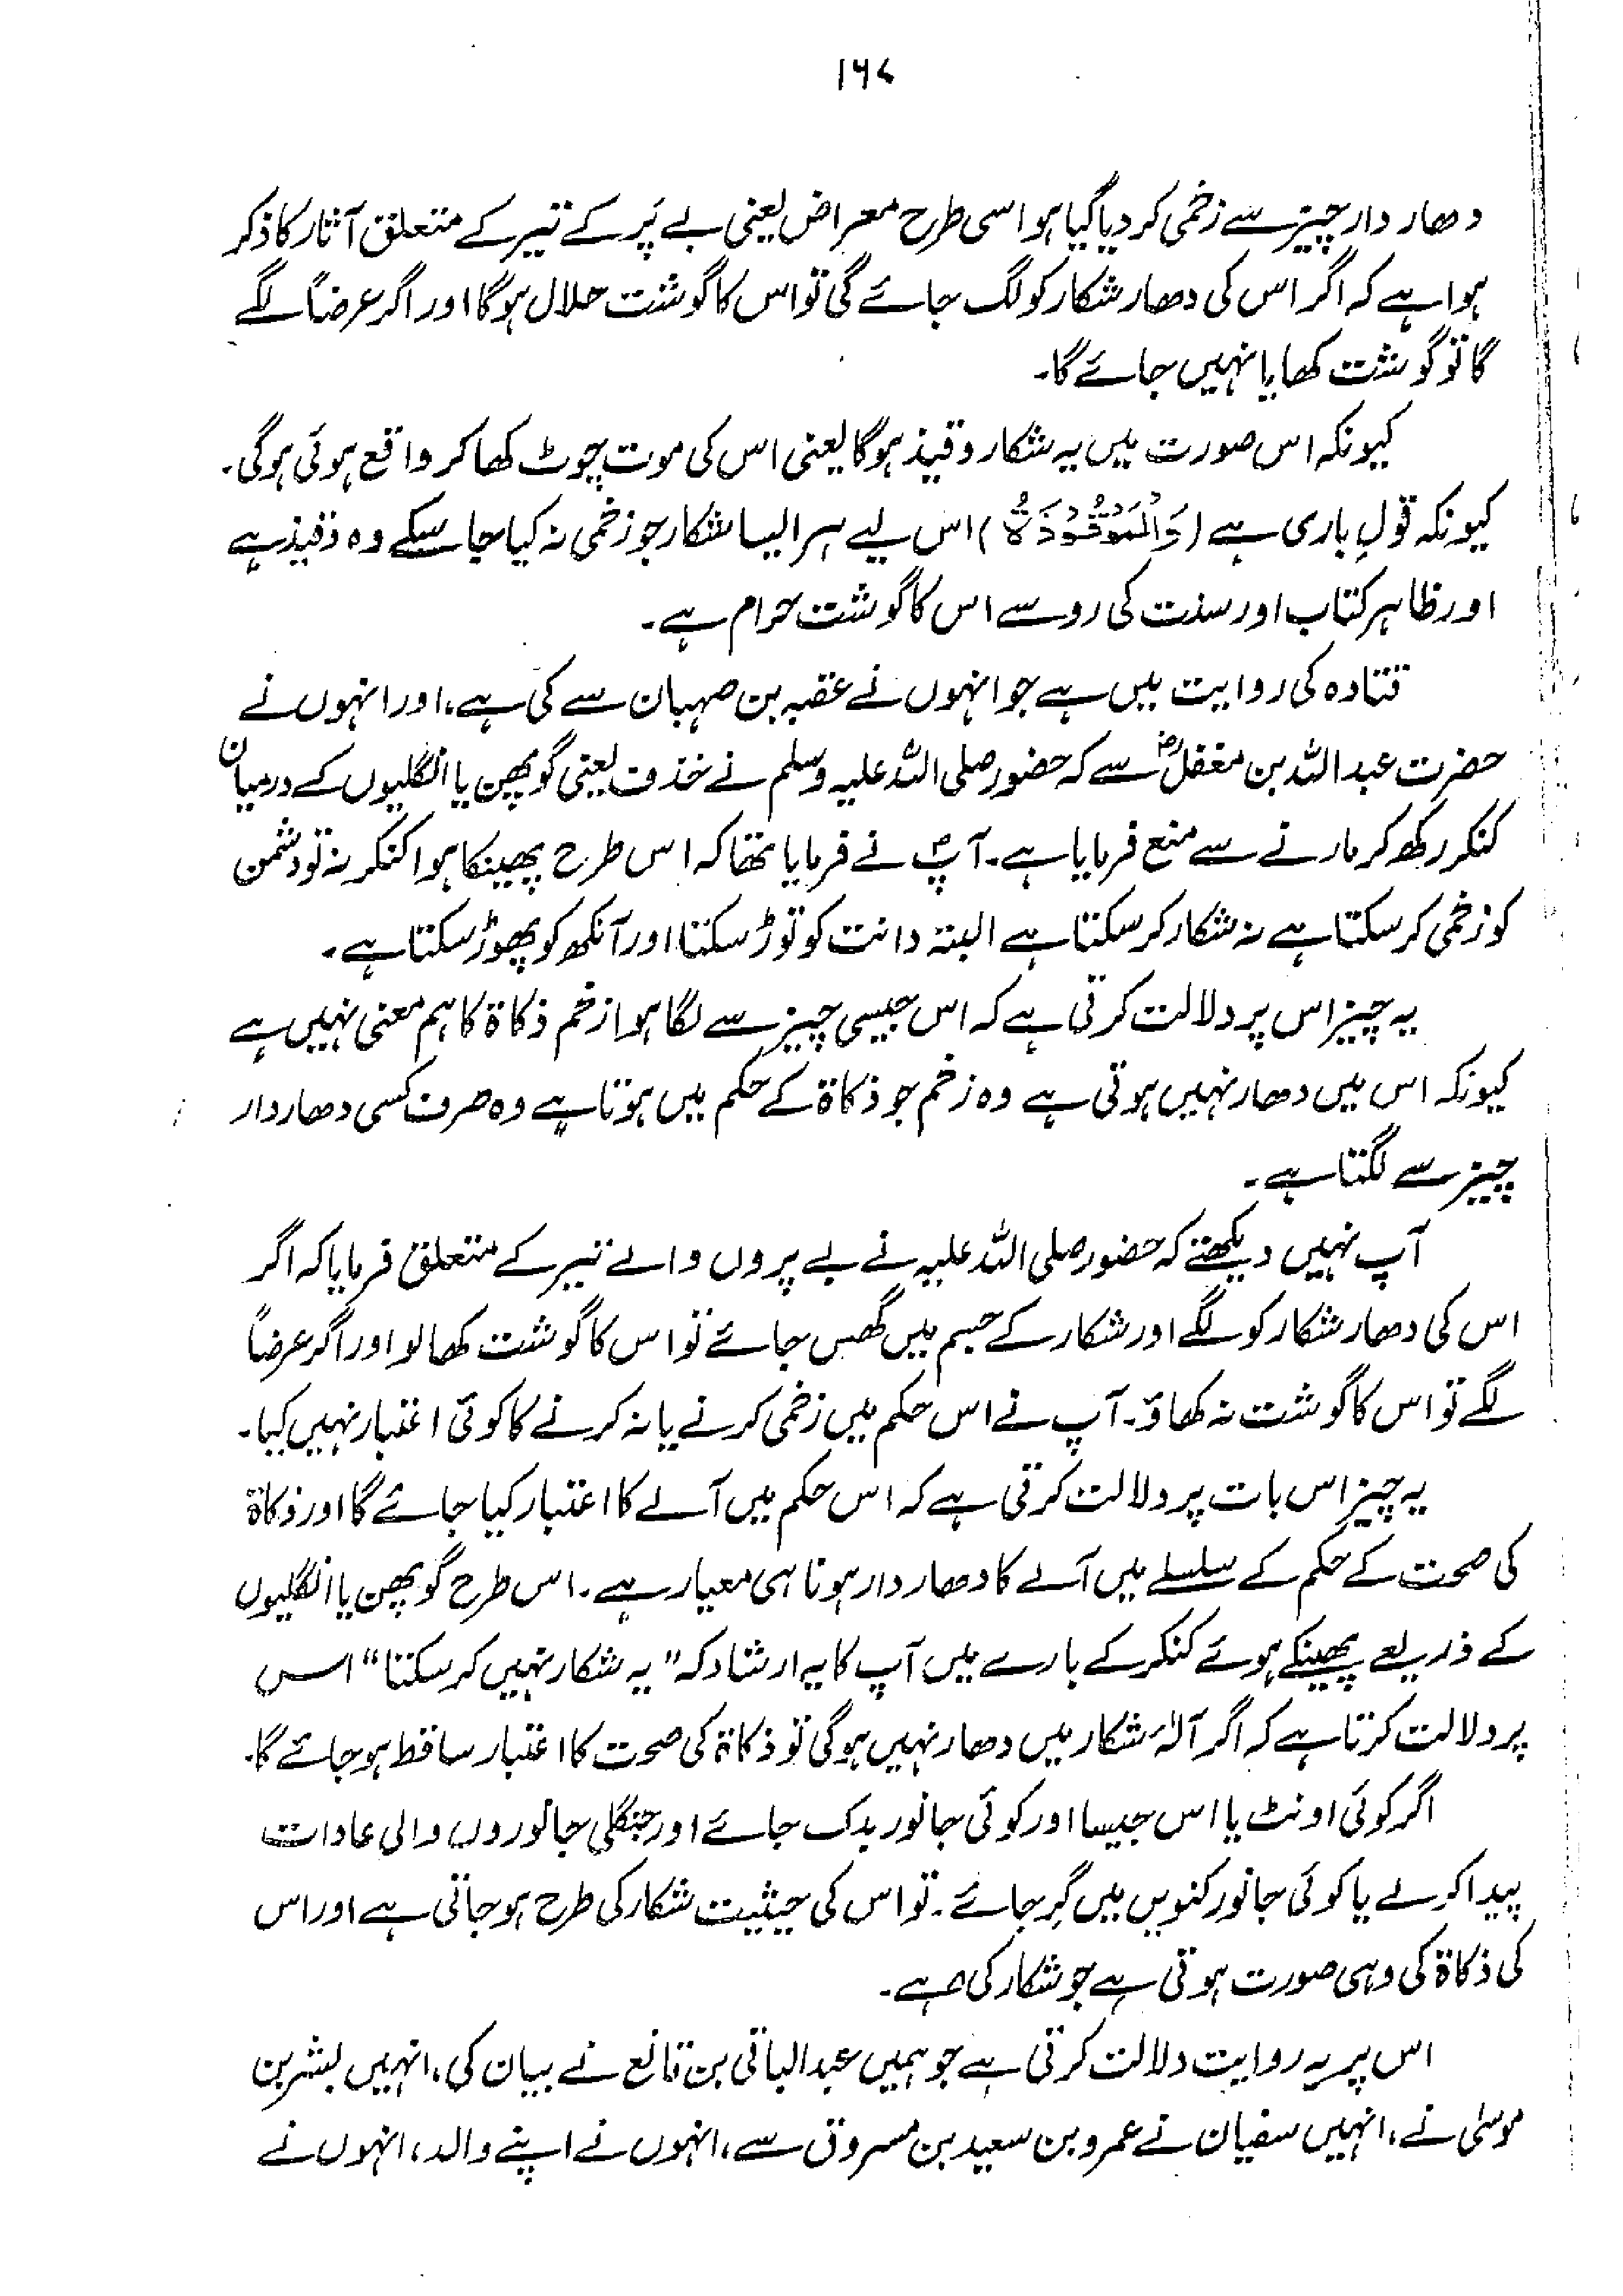 ۱۶۷
دھار دار چیز سے زخمی کر دیا گیا ہو اسی طرح معراض یعنی بے پَر کے تیر کے متعلق آثار کا ذکر
ہوا ہے کہ اگر اس کی دھار شکار کو لگ جائے گی تو اس کا گوشت حلال ہوگا اور اگر عرضاً لگے
گا تو گوشت کھایا نہیں جائے گا۔
کیونکہ اس صورت میں یہ شکار وقیذ ہوگا یعنی اس کی موت چوٹ کھا کر واقع ہوئی ہوگی۔
کیونکہ قولِ باری ہے (وَالْمَوْقُوْذَۃُ) اس لیے ہر ایسا شکار جو زخمی نہ کیا جا سکے وہ وقیذ ہے
اور ظاہر کتاب اور سنت کی رو سے اس کا گوشت حرام ہے۔
قتادہ کی روایت میں ہے جو انہوں نے عقبہ بن صہبان سے کی ہے، اور انہوں نے
حضرت عبداللہ بن مغفلؓ سے کہ حضور صلی اللہ علیہ وسلم نے خذف یعنی گوپھن یا انگلیوں کے درمیان
کنکر رکھ کر مارنے سے منع فرمایا ہے۔ آپؐ نے فرمایا تھا کہ اس طرح پھینکا ہوا کنکر نہ تو دشمن
کو زخمی کر سکتا ہے نہ شکار کر سکتا ہے البتہ دانت کو توڑ سکتا اور آنکھ کو پھوڑ سکتا ہے۔
یہ چیز اس پر دلالت کرتی ہے کہ اس جیسی چیز سے لگا ہوا زخم ذکاۃ کا ہم معنی نہیں ہے
کیونکہ اس میں دھار نہیں ہوتی ہے وہ زخم جو ذکاۃ کے حکم میں ہوتا ہے وہ صرف کسی دھار دار
چیز سے لگتا ہے۔
آپ نہیں دیکھتے کہ حضور صلی اللہ علیہ نے بے پروں والے تیر کے متعلق فرمایا کہ اگر
اس کی دھار شکار کو لگے اور شکار کے جسم میں گھس جائے تو اس کا گوشت کھالو اور اگر عرضاً
لگے تو اس کا گوشت نہ کھاؤ۔ آپ نے اس حکم میں زخمی کرنے یا نہ کرنے کا کوئی اعتبار نہیں کیا۔
یہ چیز اس بات پر دلالت کرتی ہے کہ اس حکم میں آلے کا اعتبار کیا جائے گا اور ذکاۃ
کی صحت کے حکم کے سلسلے میں آلے کا دھار دار ہونا ہی معیار ہے۔ اس طرح گوپھن یا انگلیوں
کے ذریعے پھینکے ہوئے کنکر کے بارے میں آپ کا یہ ارشاد کہ "یہ شکار نہیں کر سکتا" اس
پر دلالت کرتا ہے کہ اگر آلۂ شکار میں دھار نہیں ہوگی تو ذکاۃ کی صحت کا اعتبار ساقط ہو جائے گا۔
اگر کوئی اونٹ یا اس جیسا اور کوئی جانور بدک جائے اور جنگلی جانوروں والی عادات
پیدا کرلے یا کوئی جانور کنویں میں گِر جائے۔ تو اس کی حیثیت شکار کی طرح ہو جاتی ہے اور اس
کی ذکاۃ کی وہی صورت ہوتی ہے جو شکار کی ہے۔
اس پر یہ روایت دلالت کرتی ہے جو ہمیں عبدالباقی بن قانع نے بیان کی، انہیں بشر بن
موسٰی نے، انہیں سفیان نے عمرو بن سعید بن مسروق سے، انہوں نے اپنے والد، انہوں نے